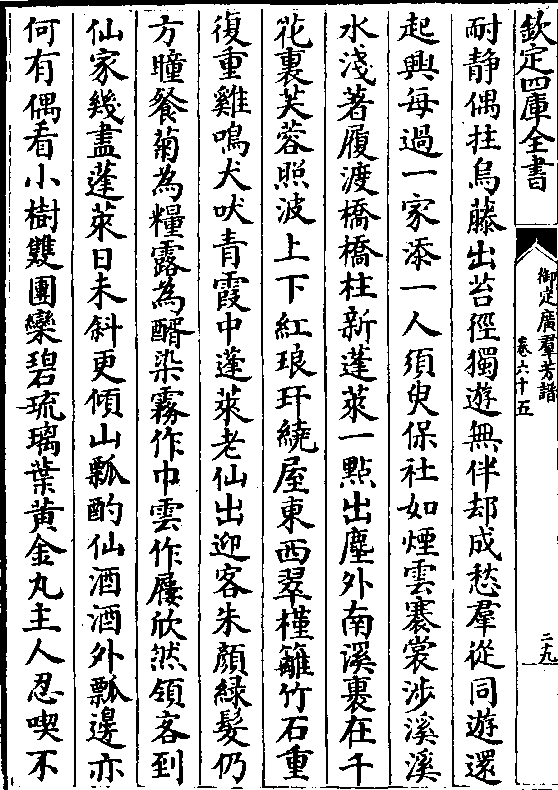 欽定四庫全書
御定廣羣芳譜
卷六十五
二九
耐静偶拄烏藤出苔徑獨遊無伴却成愁羣從同遊還
起興每過一家添一人須臾保社如煙雲褰裳涉溪溪
水淺著履渡橋橋柱新蓬萊一點出塵外南溪裏在千
花裏芙蓉照波上下紅琅玕繞屋東西翠槿籬竹石重
復重雞鳴犬吠青霞中蓬萊老仙出迎客朱顔緑髮仍
方瞳餐菊為糧露為醑染霧作巾雲作屨欣然領客到
仙家幾盡蓬萊日未斜更傾山瓢酌仙酒酒外瓢邊亦
何有偶看小樹雙團欒碧琉璃葉黄金丸主人忍喫不